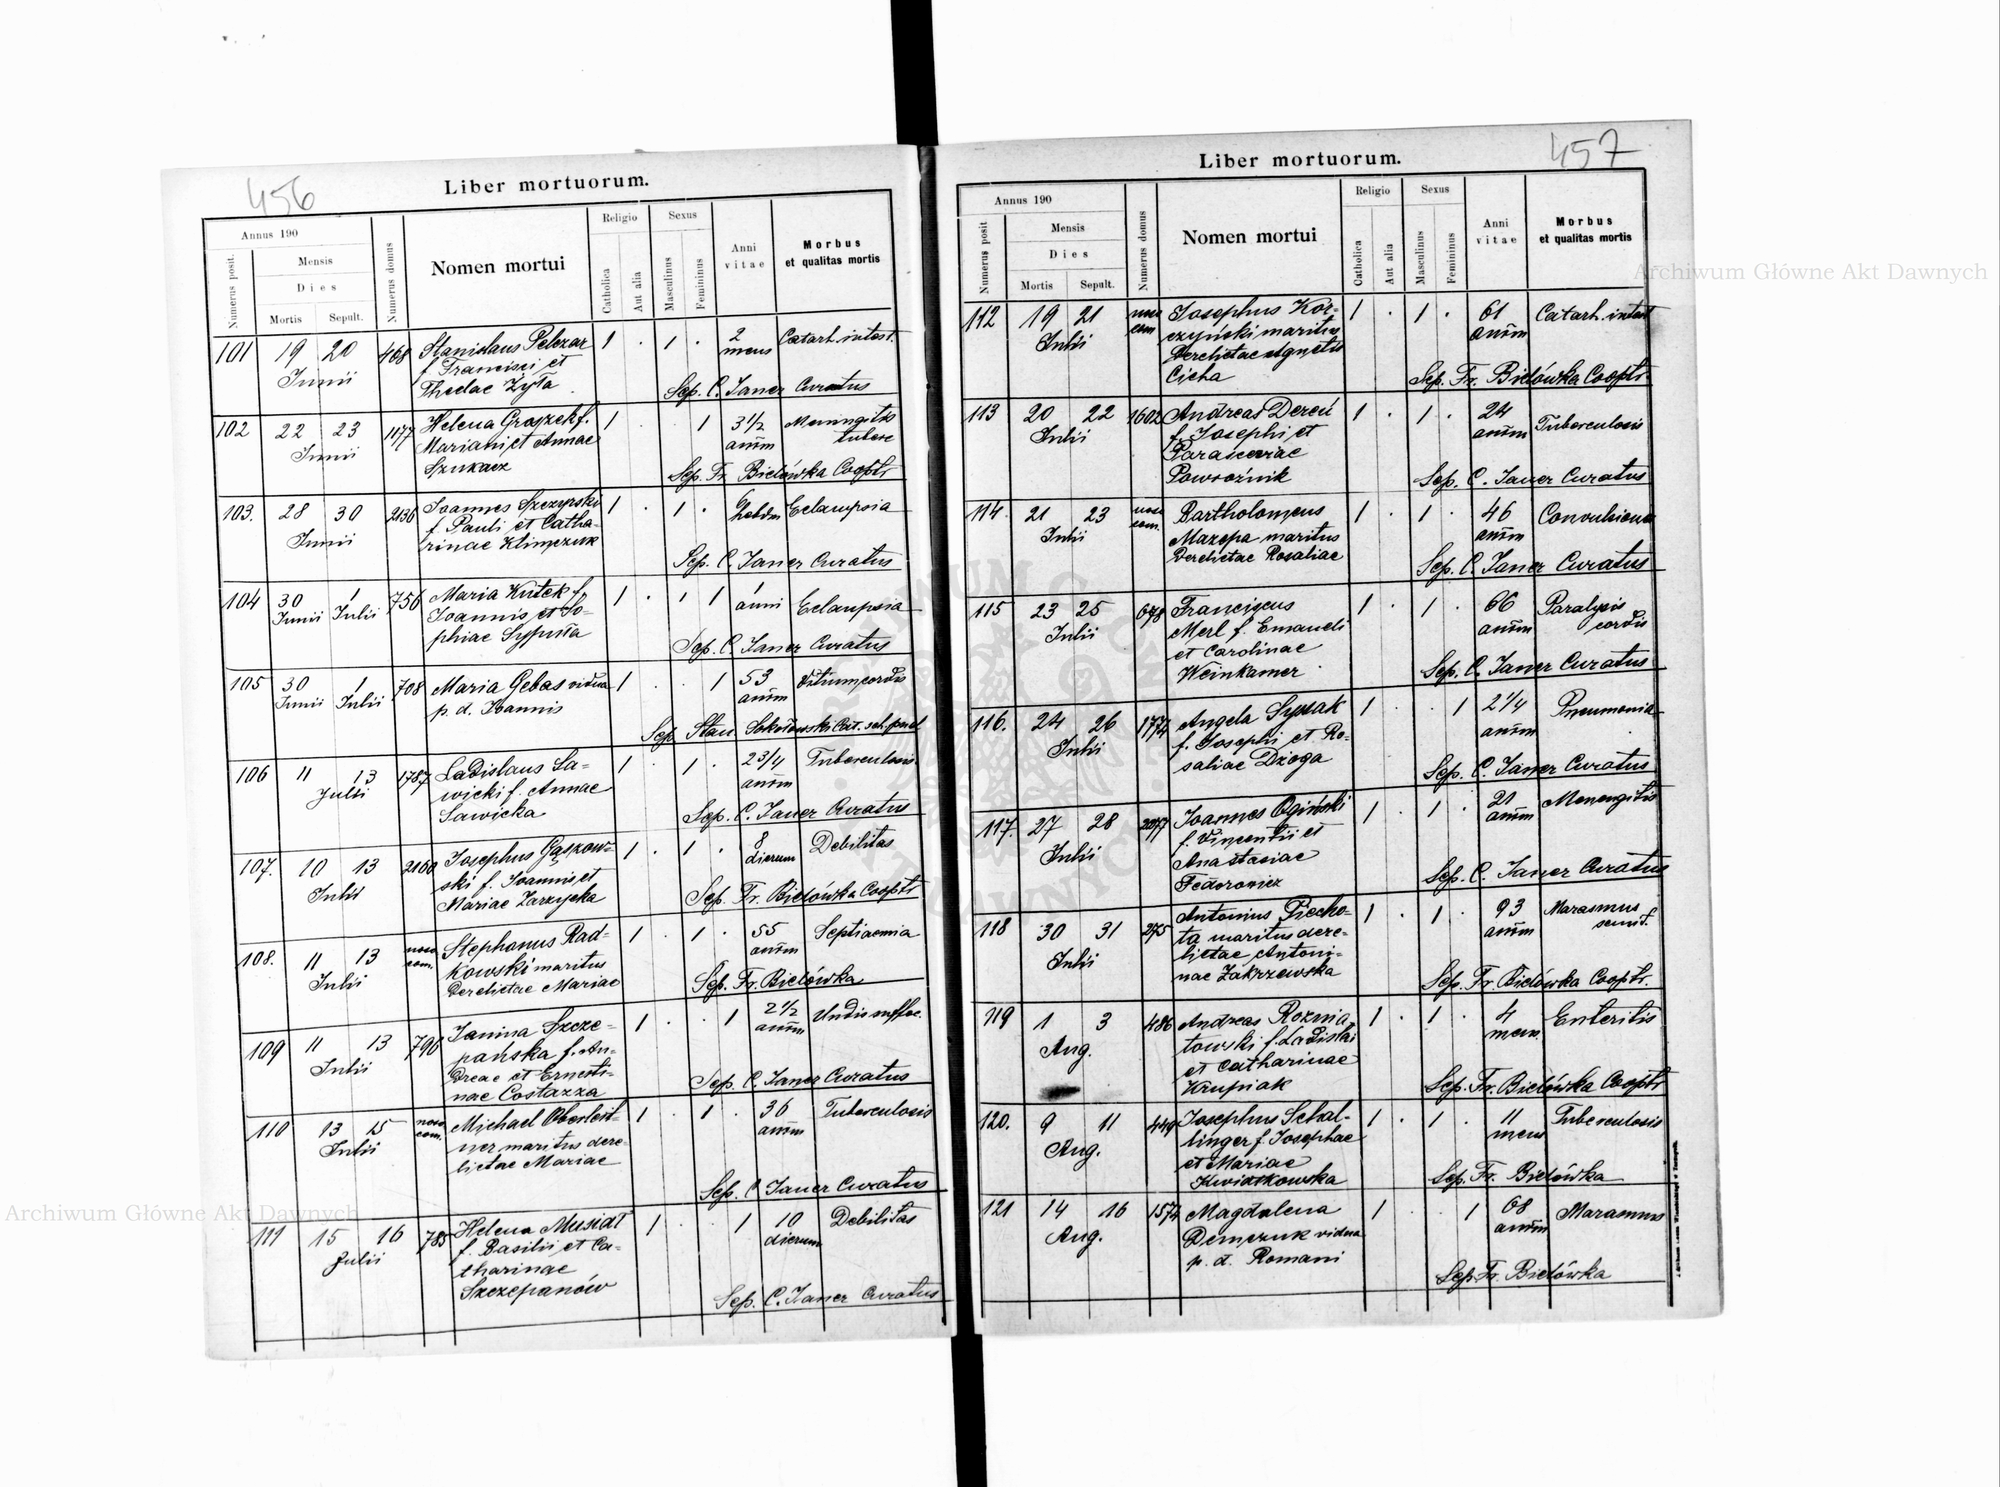 456
Liber mortuorum.
Annus 190
Numerus posit.
Mensis
Dies
Mortis Sepult.
Numerus domus
Nomen mortui
Religio
Catholica
Aut alia
Sexus
Masculinus
Femininus
Anni vitae
Morbus
et qualitas mortis
101 19 20 Junii 468 Stanislaus Pelczar 1 . 1 . 2 mens Catarh. intest.
f. Francisci et
Theclae Zyła
Sep. C. Janer Curatus
102 22 23 Junii 1177 Helena Groszek f. 1 . 1 3 1/2 anñm Meningitis
Mariani et Annae
Szukacz
Sep. Fr. Bielówka Cooptr
103. 28 30 Junii 2136 Joannes Szczyrski 1 . 1 . hebdm Eclampsia
f. Pauli et Catha-
rinae Klimczuk
Sep. C. Janer Curatus
104 30 Junii 1 Julii 756 Maria Kutek f. 1 . 1 1 anni Eclampsia
Joannis et So-
phiae Sypuła
Sep. C. Janer Curatus
105 30 Junii 1 Julii 708 Maria Gebas vidua 1 . 1 53 anñm Vitium cordis
p. d. Joannis
Sep. Stan. Sokołowski Cat. sch.
106 11 13 Julii 1787 Ladislaus Sa- 1 . 1 . 2 3/4 anñm Tuberculosis
wicki f. Annae
Sawicka
Sep. C. Janer Curatus
107. 10 13 Julii 2160 Josephus Gąskow- 1 . 1 . 8 dierum Debilitas
ski f. Joannis et
Mariae Zarzycka
Sep. Fr. Bielówka Cooptr
108. 11 13 Julii noso com. Stephanus Rad- 1 . 1 . 55 anñm Septiaemia
kowski maritus
derelictae Mariae
Sep. Fr. Bielówka
109 11 13 Julii 796 Janina Szcze- 1 . 1 2 1/2 anñm Undis suffoc.
pańska f. An-
dreae et Ernesti-
nae Costazza
Sep. C. Janer Curatus
110 13 15 Julii noso com. Michael Oberleit- 1 . 1 . 36 anñm Tuberculosis
ner maritus dere-
lictae Mariae
Sep. C. Janer Curatus
111 15 16 Julii 785 Helena Musiał 1 . 1 10 dierum Debilitas
f. Basilii et Ca-
tharinae
Szczepanów
Sep. C. Janer Curatus
457
Liber mortuorum.
Annus 190
Numerus posit
Mensis
Dies
Mortis Sepult.
Numerus domus
Nomen mortui
Religio
Catholica
Aut alia
Sexus
Masculinus
Femininus
Anni vitae
Morbus
et qualitas mortis
112 19 21 Julii noso com Josephus Kor- 1 . 1 . 61 anñm Catarh. intest
czyński maritus
derelictae Agnetis
Cicha
Sep. Fr. Bielówka Cooptr.
113 20 22 Julii 1602 Andreas Dereń 1 . 1 . 24 anñm Tuberculosis
f. Josephi et
Parasceviae
Powroźnik
Sep. C. Janer Curatus
114 21 23 Julii noso com. Bartholomeus 1 . 1 . 46 anñm
Mazepa maritus
derelictae Rosaliae
Sep. C. Janer Curatus
115 23 25 Julii 678 Franciscus 1 . 1 . 66 anñm Paralysis cordis
Merl f. Emaneli
et Carolinae
Weinkamer
Sep. C. Janer Curatus
116. 24 26 Julii 1774 Angela Sysak 1 . 1 2 1/4 anñm Pneumonia
f. Josephi et Ro-
saliae Dżoga
Sep. C. Janer Curatus
117. 27 28 Julii 2077 Joannes Ogiński 1 . 1 . 21 anñm Menengitis
f. Vincentii et
Anastasiae
Fedorowicz
Sep. C. Janer Curatus
118 30 31 Julii 275 Antonius Piecho- 1 . 1 . 93 anñm Marasmus
ta maritus dere-
lictae Antoni-
nae Zakrzewska
Sep. Fr. Bielówka Cooptr.
119 1 3 Aug. 486 Andreas Roznia- 1 . 1 . 4 mens. Enteritis
towski f. Ladislai
et Catharinae
Krupiak
Sep. Fr. Bielówka Cooptr
120. 9 11 Aug. 449 Josephus Schal- 1 . 1 . 11 mens Tuberculosis
linger f. Josephae
et Mariae
Kwiatkowska
Sep. Fr. Bielówka
121 14 16 Aug. 1574 Magdalena 1 1 68 anñm Marasmus
Demczuk vidua
p. d. Romani
Sep. Fr. Bielówka
Archiwum Główne Akt Dawnych
Archiwum Główne Akt Dawnych